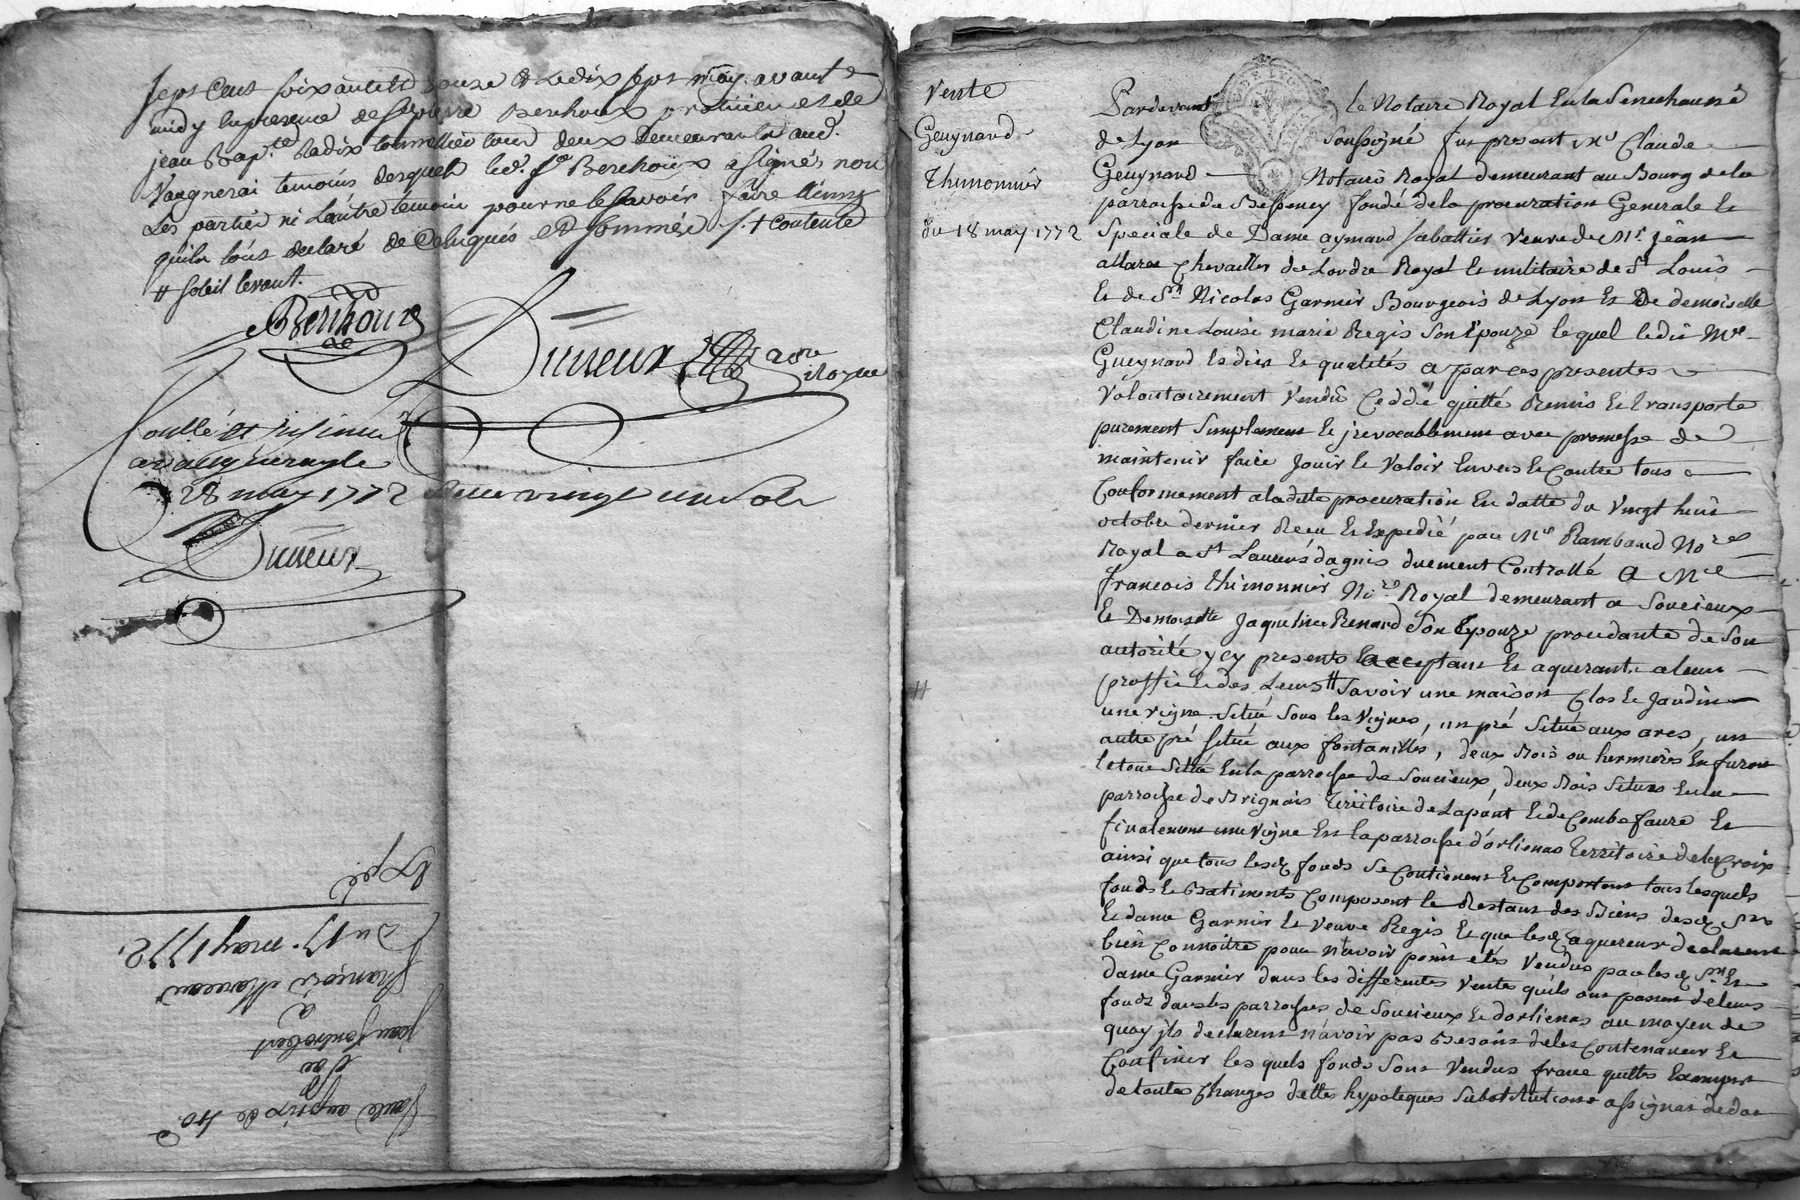 sept Cent soixante et douze & Le dix sept may avant
midy En presence de Sr pierre Berthoux praticien et de
jean Bapte. Radix tonnellier tous deux Demeurant aud.
Vaugnerai temoins desquels led. Sr Berthoux a signé non
Les parties ni L'autre temoin pour ne le Savoir faire
quils tous declaré de Ce enquis et Sommés
# Soleil levant.
Berthoux
Dureux
no.re Royal
Controllé et insinué
a vaugneray le
28 may 1772
vingt un Sols
Dureux
Expé
Du 17. may 1772.
François
a
jean
de
Vente au prix de 410.
Vente
Geuynard
Thimonnier
du 18 may 1772
Pardevant le Notaire Royal En la Senechaussé
de Lyon Soussigné fut present Me Claude
Geuynard Notaire Royal demeurant au Bourg de la
parroisse de Bessenay fondé de la procuration Generale Et
Speciale de Dame aymard Sabattier Veuve de Mr jean
Chevallier de Lordre Royal Et militaire de St Louis
Et de Sr. Nicolas Garnier Bourgeois de Lyon Et De demoiselle
Claudine Louise marie Regis Son Epouze le quel ledit Me
Gueynard Esdits Et qualités a par ces presentes
Volontairement Vendu Ceddé quitté Remis Et transporte
purement Simplement Et jrevocablement avec promesse de
maintenir faire Jouir Et Valoir Envers Et Contre tous
Conformement a ladite procuration En datte du Vingt huit
octobre dernier Recu Et Expedié par Me Rambaud No.re
Royal a St Laurens dagnis duement Controllé a Me
francois thimonnier No.re Royal demeurant a Soucieux
Et Demoiselle Jaqueline Renard Son Epouze procedante de Son
autorité ycy presents Et acceptant Et aquerants a leur
proffit Et des Leurs # Savoir une maison Clos Et Jardin
une vigne Situé Sous les Vignes, un pré Situé aux ares, un
autre pré Situé aux fontanilles, deux Bois ou hermieres En furon
le toue Situé En la parroisse de Soucieux, deux Bois Situes En la
parroisse de Brignais territoire de Lapont Et de Combe faure Et
finalement une Vigne En la parroisse d'orlienas territoire de la Croix
ainsi que tous lesd. fonds Se Contienent Et Comportent tous lesquels
fonds Et Batiments Composent le Restant des Biens desd. Srs
Et dame Garnier Et Veuve Regis Et que lesd. aquereurs declarent
bien Connoitre pour n'avoir point étés Vendus par lesd. Sr Et
dame Garnier dans les differentes Vente quils ont passes de leurs
fonds dans les parroisses de Soucieux Et dorlienas au moyen de
quoy jls declarent n'avoir pas Besoin de les Contenancer Et
Confiner les quels fonds Sont Vendus franc quittes Exempt
de toutes Charges dettes hypoteques Substitutions assignat de dot
#